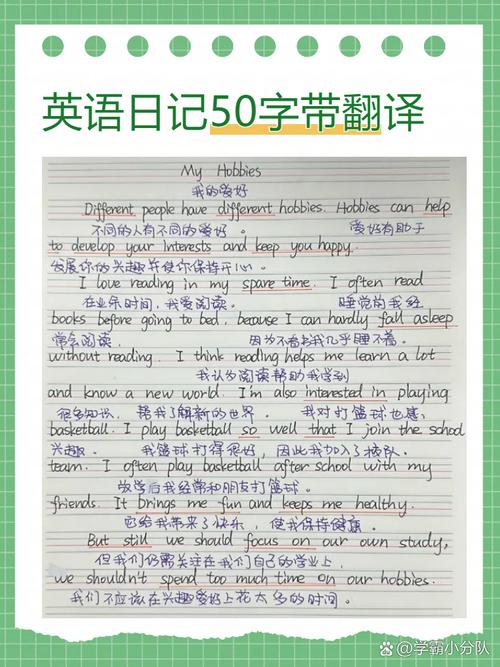 英语日记50字带翻译
My Hobbies
我的爱好
Different people have different hobbies. Hobbies can help
不同的人有不同的爱好。 爱好有助于
to develop your interests and keep you happy.
发展你的兴趣并使你保持开心。
I love reading in my spare time. I often read
在业余时间,我爱阅读。 睡觉前我经
books before going to bed, because I can hardly fall asleep
常会阅读, 因为不看书我几乎睡不着。
without reading. I think reading helps me learn a lot
我认为阅读帮助我学到
and know a new world. I'm also interested in playing
很多知识, 帮我了解新的世界。 我对打篮球也感
basketball. I play basketball so well that I join the school
兴趣。 我篮球打得很好,因此我加入了校队。
team. I often play basketball after school with my
放学后我经常和朋友打篮球。
friends. It brings me fun and keeps me healthy.
它给我带来了快乐,使我保持健康。
But still we should focus on our own study,
但我们仍需关注在我们自己的学业上,
we shouldn't spend too much time on our hobbies.
我们不应该在兴趣爱好上花太多的时间。
学霸小分队